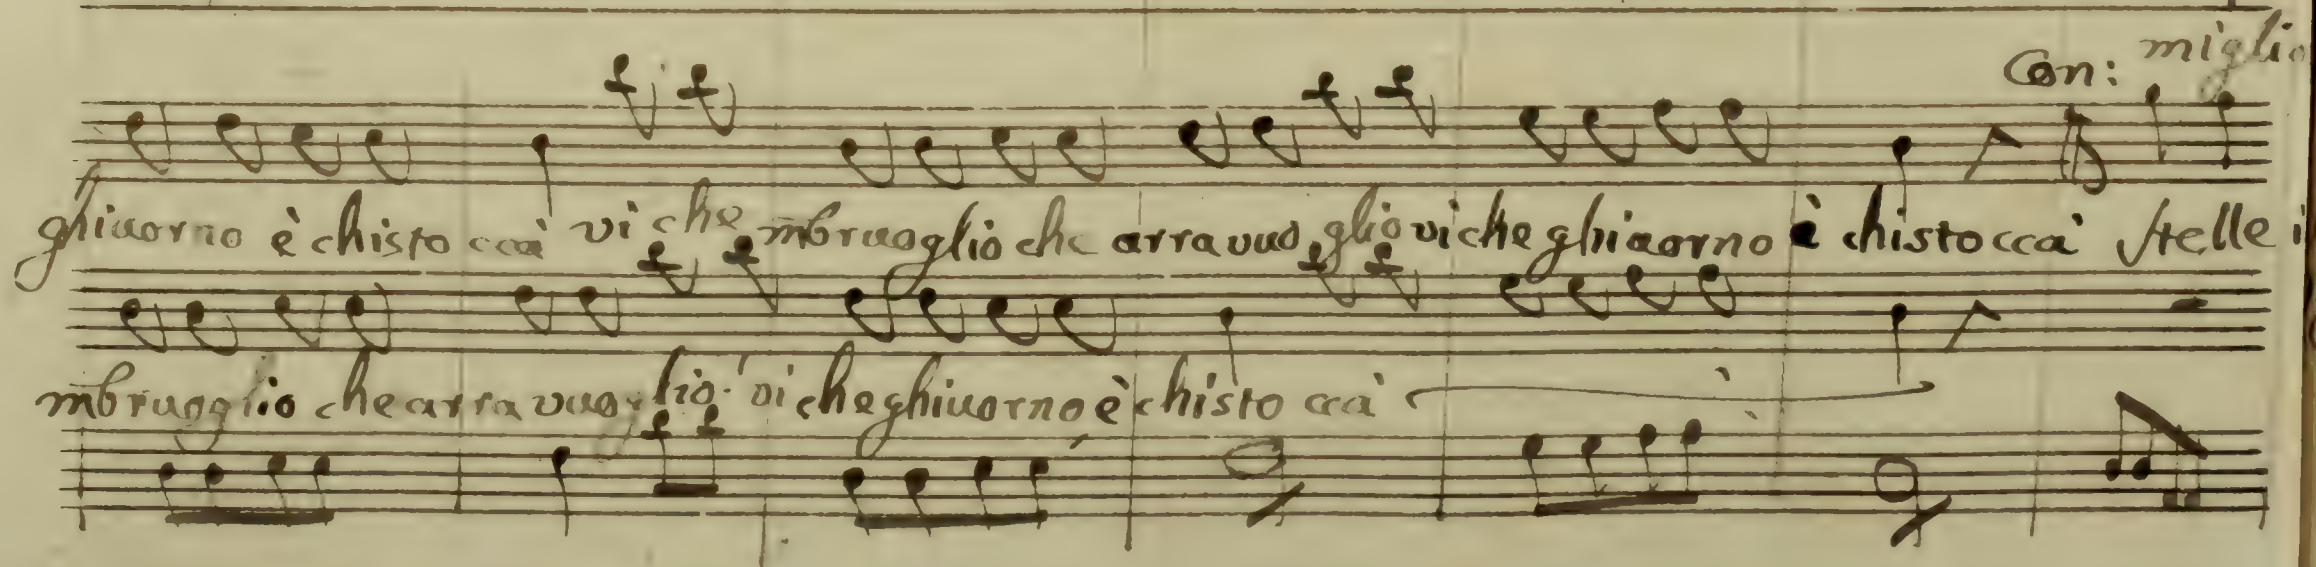 Con: miglio
ghiuorno è chisto ccà vi che mbruoglio che arravuoglio vi che ghiuorno è chisto ccà Stelle i
mbruoglio che arravuoglio vi che ghiuorno è chisto ccà